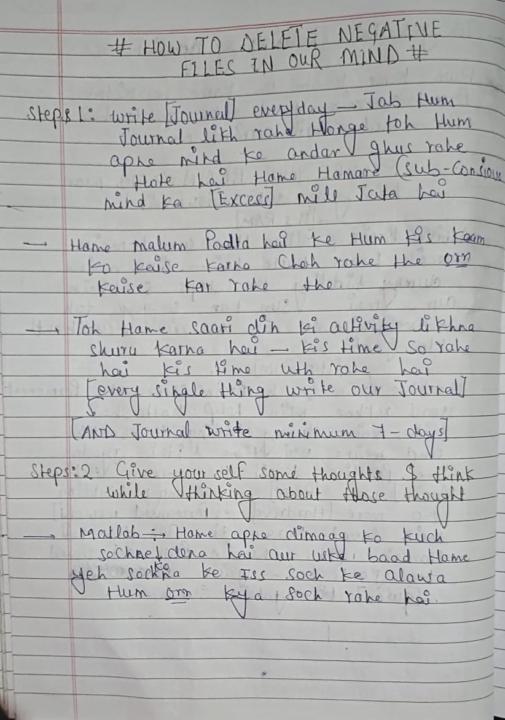 # HOW TO DELETE NEGATIVE
FILES IN OUR MIND #
Steps 1: write [Journal] everyday → Jab Hum
Journal likh rahe Honge toh Hum
apne mind ke andar ghus rahe
Hote hai Hame Hamare (sub-consious
mind ka [Excess] mill Jata hai
→ Hame malum Padta hai ke Hum kis kaam
ko kaise karna Chah rahe the orr
kaise kar rahe the
→ Toh Hame saari din ki activity likhna
shuru karna hai → kis time so rahe
hai kis time uth rahe hai
[every single thing write our Journal]
[AND Journal write minimum 7-days]
Steps:2 Give your self some thoughts & think
while thinking about those thought
→ Matlab :- Hame apne dimaag ko kuch
sochne ko dena hai aur uske baad Hame
yeh sochna ke Iss soch ke alawa
Hum orr kya soch rahe hai